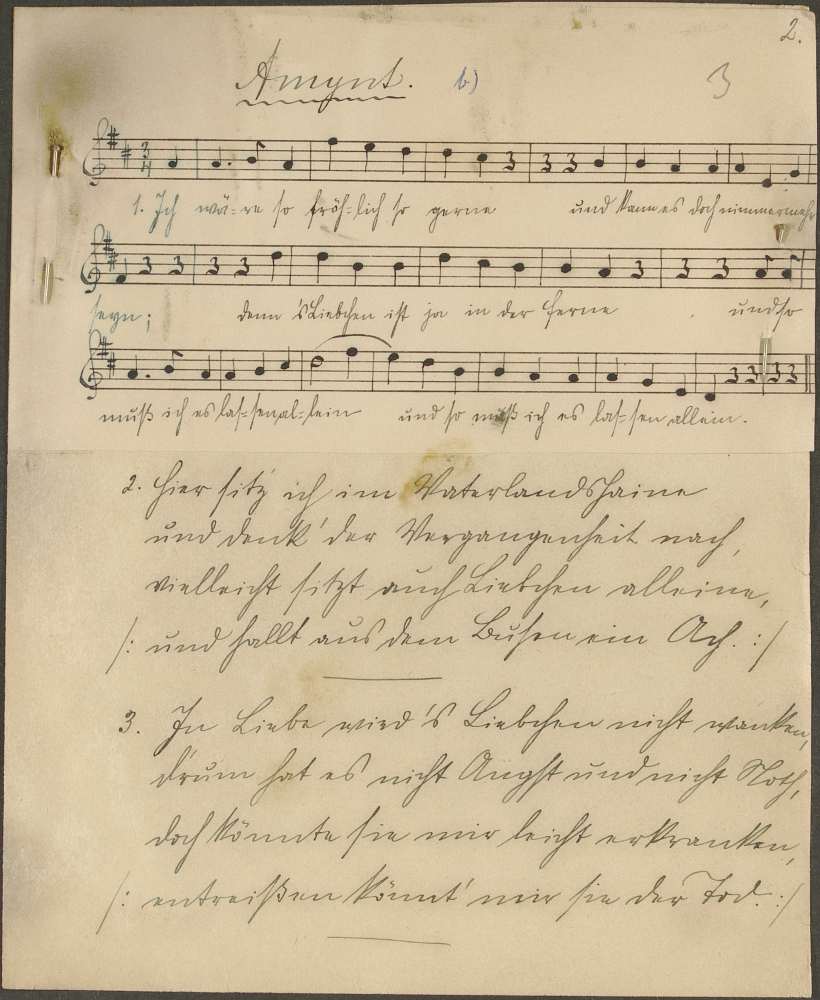 2.
Amynt. b) 3
1. Ich wä=re so fröh=lich so gerne und kann es doch nimmermehr
seyn; denn 's Liebchen ist ja in der Ferne und so
muß ich es las=sen al=lein und so muß ich es las=sen allein.
2. Hier sitz' ich im Vaterlandshaine
und denk' der Vergangenheit nach,
vielleicht sitzt auch Liebchen alleine,
/: und hallt aus dem Busen ein Ach. :/
3. In Liebe wird 's Liebchen nicht wanken,
d'rum hat es nicht Angst und nicht Noth,
doch könnte sie mir leicht erkranken,
/: entreißen könnt' mir sie der Tod. :/